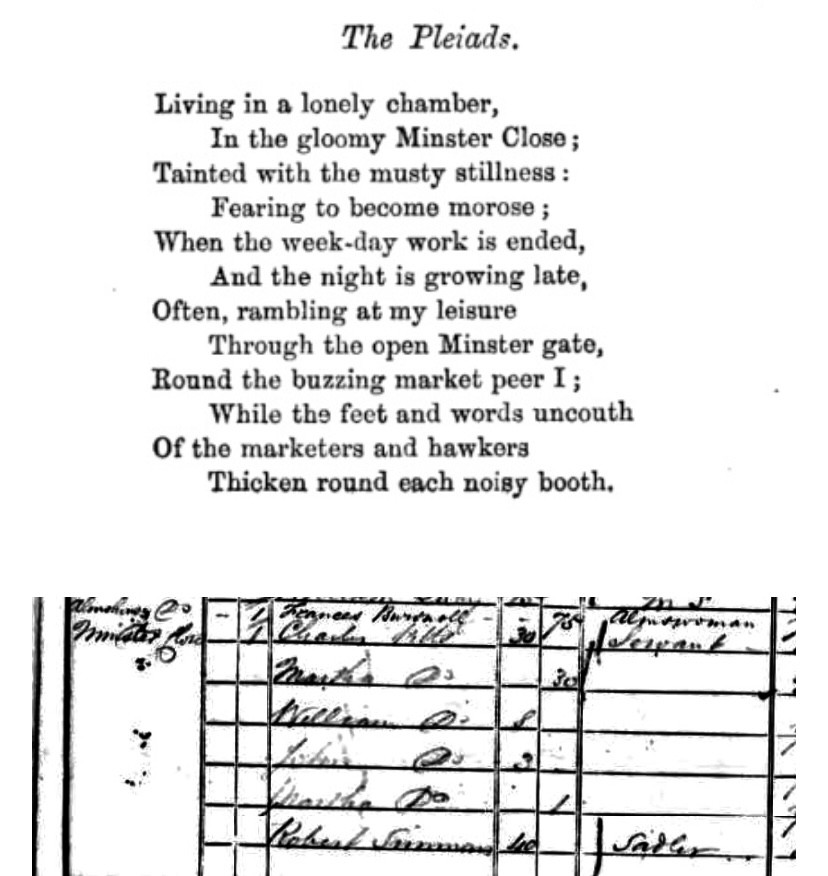 The Pleiads.
Living in a lonely chamber,
In the gloomy Minster Close;
Tainted with the musty stillness:
Fearing to become morose;
When the week-day work is ended,
And the night is growing late,
Often, rambling at my leisure
Through the open Minster gate,
Round the buzzing market peer I;
While the feet and words uncouth
Of the marketers and hawkers
Thicken round each noisy booth.
Do - 1 Frances - 75 Almswoman
Minster 1 Charles 30 Servant
Martha Do 30
William Do 8
John Do 3
Martha Do 1
Robert Simmons 40 Sadler